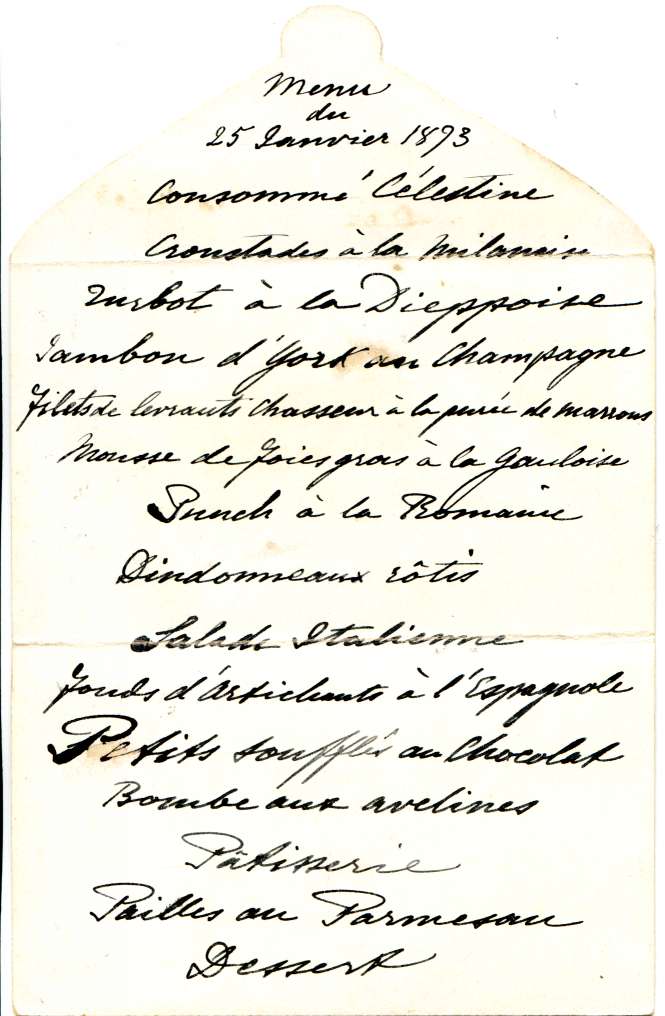 Menu
du
25 Janvier 1893
Consommé Célestine
Croustades à la Milanaise
Turbot à la Dieppoise
Jambon d'York au Champagne
Filets de levrauts chasseur à la purée de marrons
Mousse de foies gras à la Gauloise
Punch à la Romaine
Dindonneaux rôtis
Salade Italienne
Fonds d'Artichauts à l'Espagnole
Petits soufflés au Chocolat
Bombe aux avelines
Pâtisserie
Pailles au Parmesan
Dessert